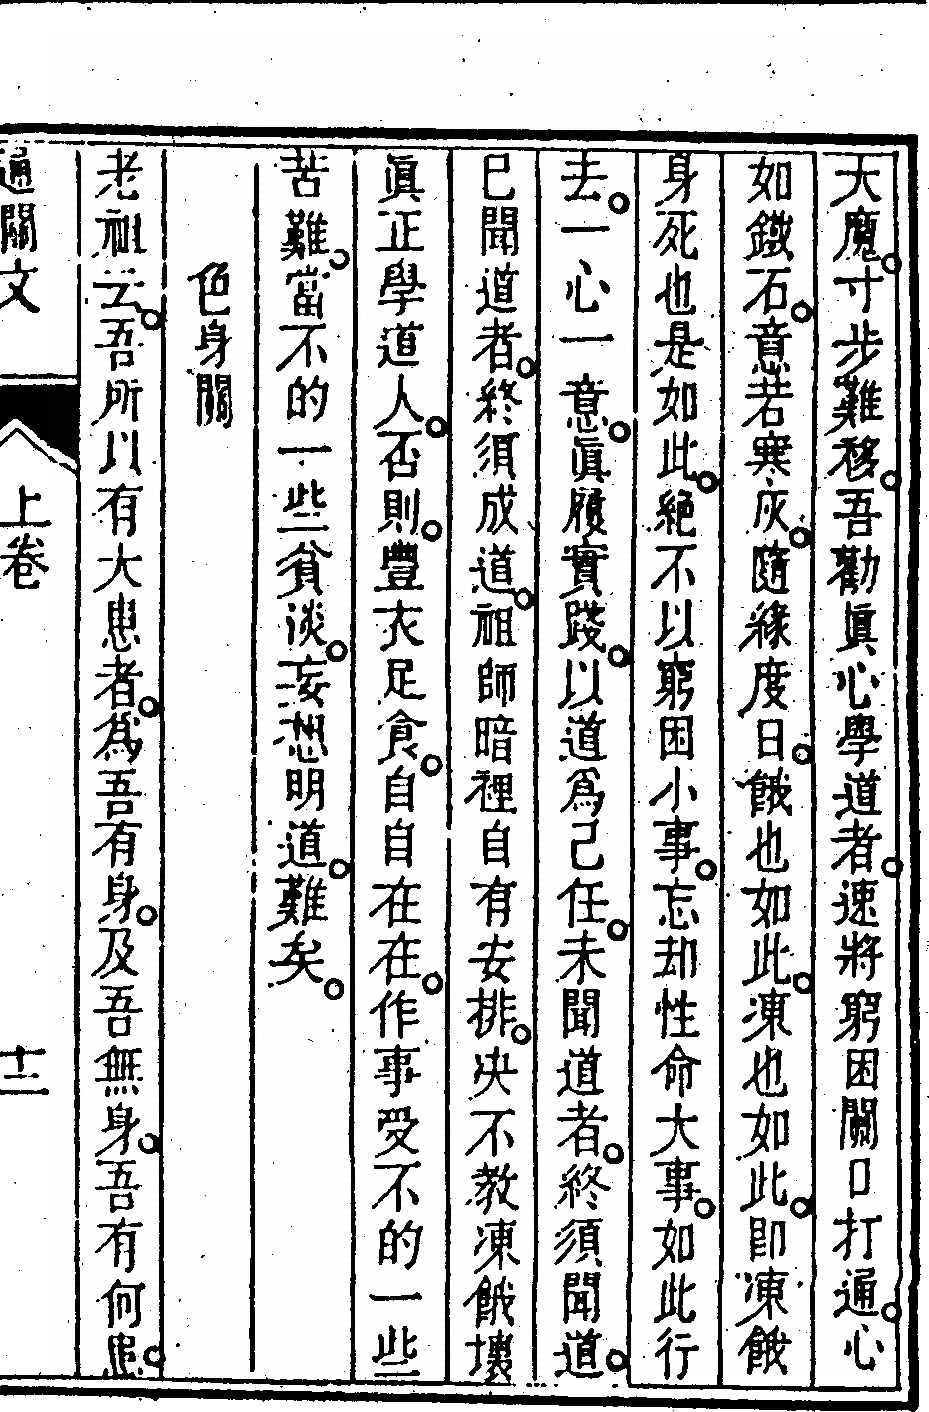 大魔。寸步難移。吾勸眞心學道者。速將窮困關口打通。心
如鐵石。意若寒灰。隨緣度日。餓也如此。凍也如此。卽凍餓
身死也是如此。絕不以窮困小事。忘却性命大事。如此行
去。一心一意。眞履實踐。以道爲己任。未聞道者。終須聞道。
已聞道者。終須成道。祖師暗裡自有安排。决不教凍餓壞
眞正學道人。否則。豐衣足食。自自在在。作事受不的一些
苦難。當不的一些貧淡。妄想明道。難矣。
色身關
老祖云。吾所以有大患者。爲吾有身。及吾無身。吾有何患。
通關文
上卷
十二